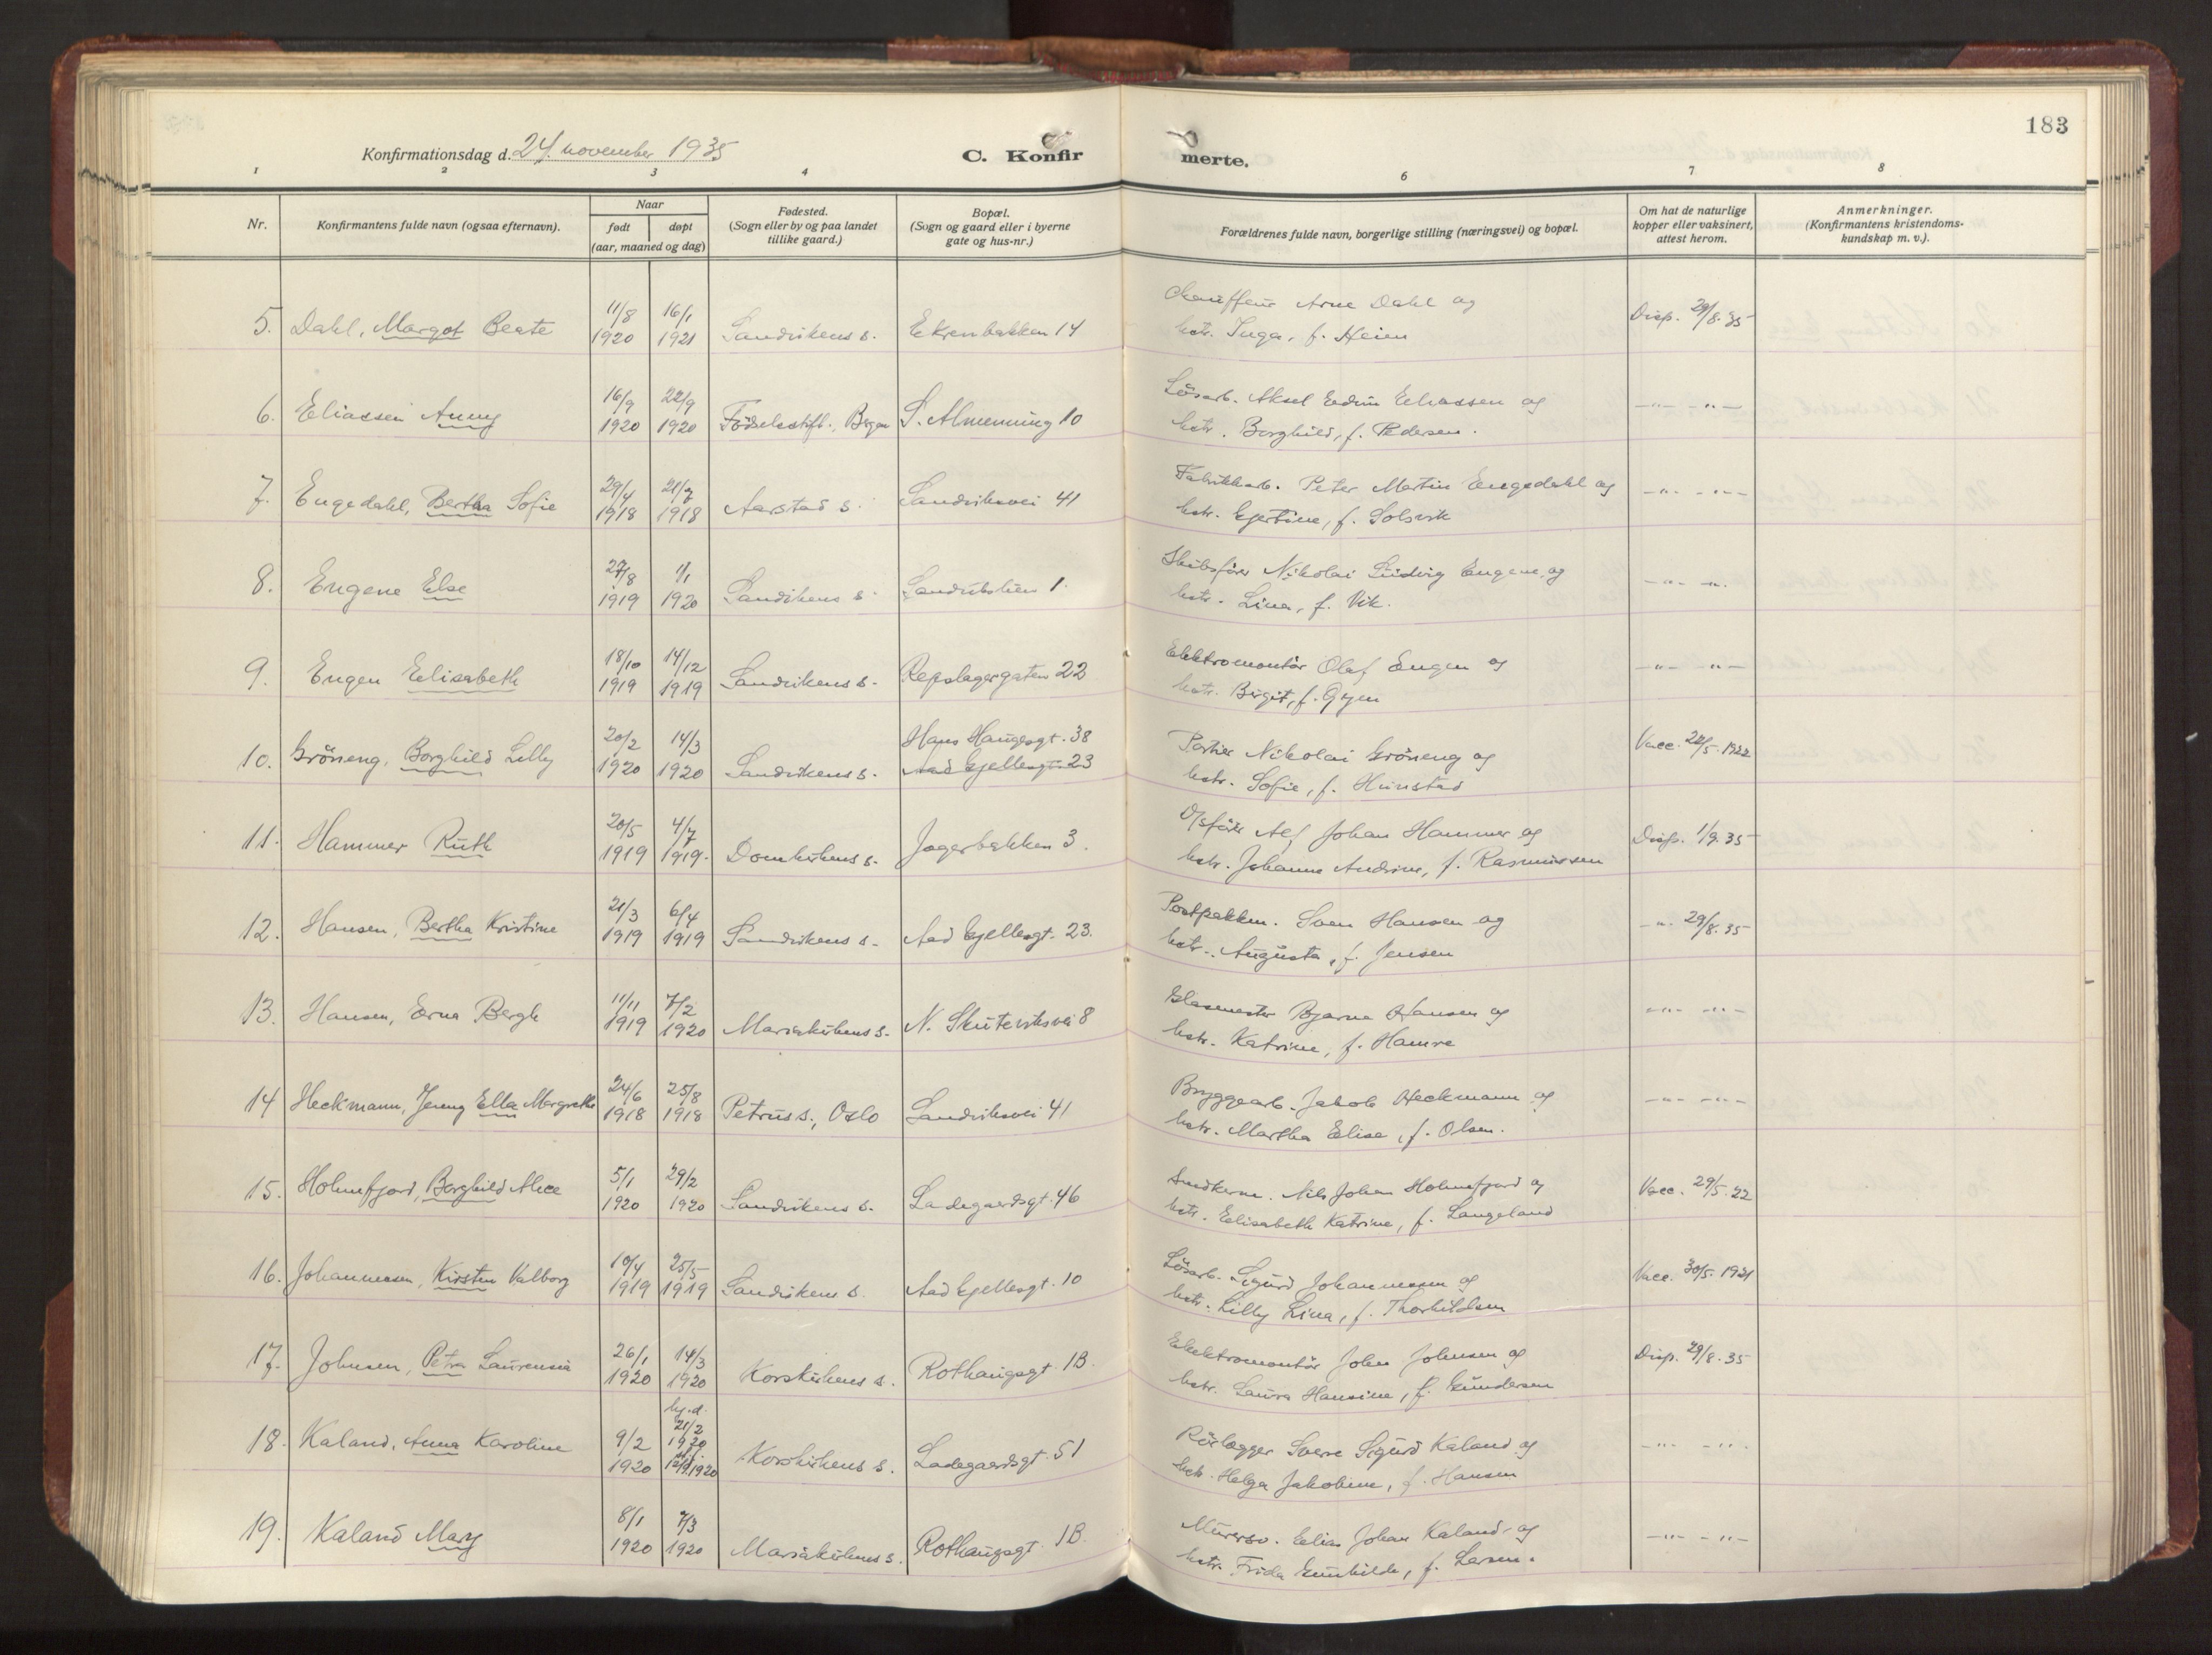 183
Konfirmationsdag d. 24. november 1935 C. Konfir merte.
1 2 3 4 6 7 8
Nr. Konfirmantens fulde navn (ogsaa efternavn). Naar født døpt (aar, maaned og dag) Fødested. (Sogn eller by og paa landet tillike gaard.) Bopæl. (Sogn og gaard eller i byerne gate og hus-nr.) Forældrenes fulde navn, borgerlige stilling (næringsvei) og bopæl. Om hat de naturlige kopper eller vaksinert, attest herom. Anmerkninger. (Konfirmantens kristendoms-kundskap m. v.).
5. Dahl, Margot Beate 11/8 1920 16/1 1921 Sandvikens s. Ekrenbakken 14 Chauffeur Arne Dahl og Disp. 29/8.35
hstr. Inga, f. Heien
6. Eliassen Anny 16/9 1920 22/9 1920 Födselsstift., Bergen S. Almenning 10 Lösarb. Aksel Edvin Eliassen og -"- -"-
hstr. Borghild, f. Pedersen.
7. Engedahl, Bertha Sofie 29/4 1918 21/7 1918 Aarstad s. Sandviksvei 41 Fabrikkarb. Peter Martin Engedahl og -"- -"-
hstr. Gjertine, f. Solsvik
8. Engene Else 27/8 1919 1/1 1920 Sandvikens s. Sandvikslien 1. Skibsförer Nikolai Ludvig Engene og -"- -"-
hstr. Lina, f. Vik.
9. Engen Elisabeth 18/10 1919 14/12 1919 Sandvikens s. Repslagergaten 22 Elektromontör Olaf Engen og -"- -"-
hstr. Birgit, f. Gjen
10. Gröneng, Borghild Lilly 20/2 1920 14/3 1920 Sandvikens s. Hans Haugesgt. 38 Aad Gjellesgt. 23 Portier Nikolai Gröneng og Vacc. 22/5.1922
hstr. Sofie, f. Hunstad
11. Hammer Ruth 20/5 1919 4/7 1919. Domkirkens s. Jægerbakken 3. Alf Johan Hammer og Disp. 1/9.35
hstr. Johanne Andrine, f. Rasmussen
12. Hansen, Bertha Kristine 21/3 1919 6/4 1919 Sandvikens s. Aad Gjellesgt. 23. Postpakkm. Sven Hansen og -"- 29/8.35
hstr. Augusta, f. Jensen
13. Hansen, Erna Bergh 11/11 1919 7/2 1920 Mariakirkens s. N. Skuteviksvei 8 Glasmester Bjarne Hansen og -"- -"-
hstr. Katrine, f. Hamre
14 Heckmann, Jenny Ella Margrethe 24/6 1918 25/8 1918 Petrus s., Oslo Sandviksvei 41 Bryggearb. Jakob Heckmann og -"- -"-
hstr. Martha Elise, f. Olsen.
15. Holmefjord, Borghild Alice 5/1 1920 29/2 1920 Sandvikens s. Ladegaardsgt. 46 Nils Johan Holmefjord og Vacc. 29/5.22
hstr. Elisabeth Katrine, f. Langeland
16. Johannessen, Kirsten Valborg 10/4 1919 25/5 1919 Sandvikens s. Aad Gjellesgt. 10 Lösarb. Sigurd Johannessen og Vacc. 30/5.1921
hstr. Lilly Lina, f. Thorkildsen
17. Johnsen, Petra Laurensia 26/1 1920 14/3 1920 Korskirkens s. Rothaugsgt. 1B. Elektromontör John Johnsen og Disp. 29/8.35
hstr. Laura Hansine, f. Gundersen
18. Kaland, Anna Karoline 9/2 1920 hj.d. 21/2 1920 12/9.1920 Korskirkens s. Ladegaardsgt. 51 Rörlægger Sverre Sigurd Kaland og -"- -"-
hstr. Helga Jakobine, f. Hansen
19. Kaland Mary 8/1 1920 7/3 1920 Mariakirkens s. Rothaugsgt. 1B. Murersv. Elias Johan Kaland og -"- -"-
hstr. Frida Gunhilde, f. Larsen.